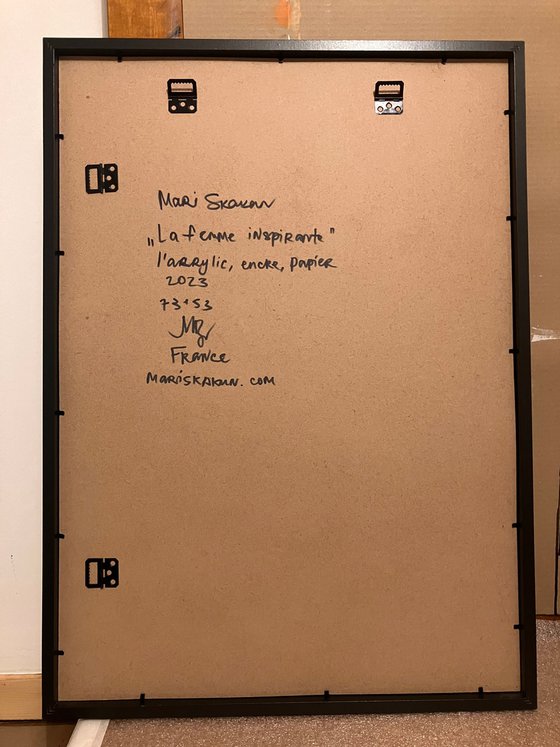 Mari Skakun
„La femme inspirante"
l'arrylic, encre, papier
2023
73*53
France
mariskakun.com